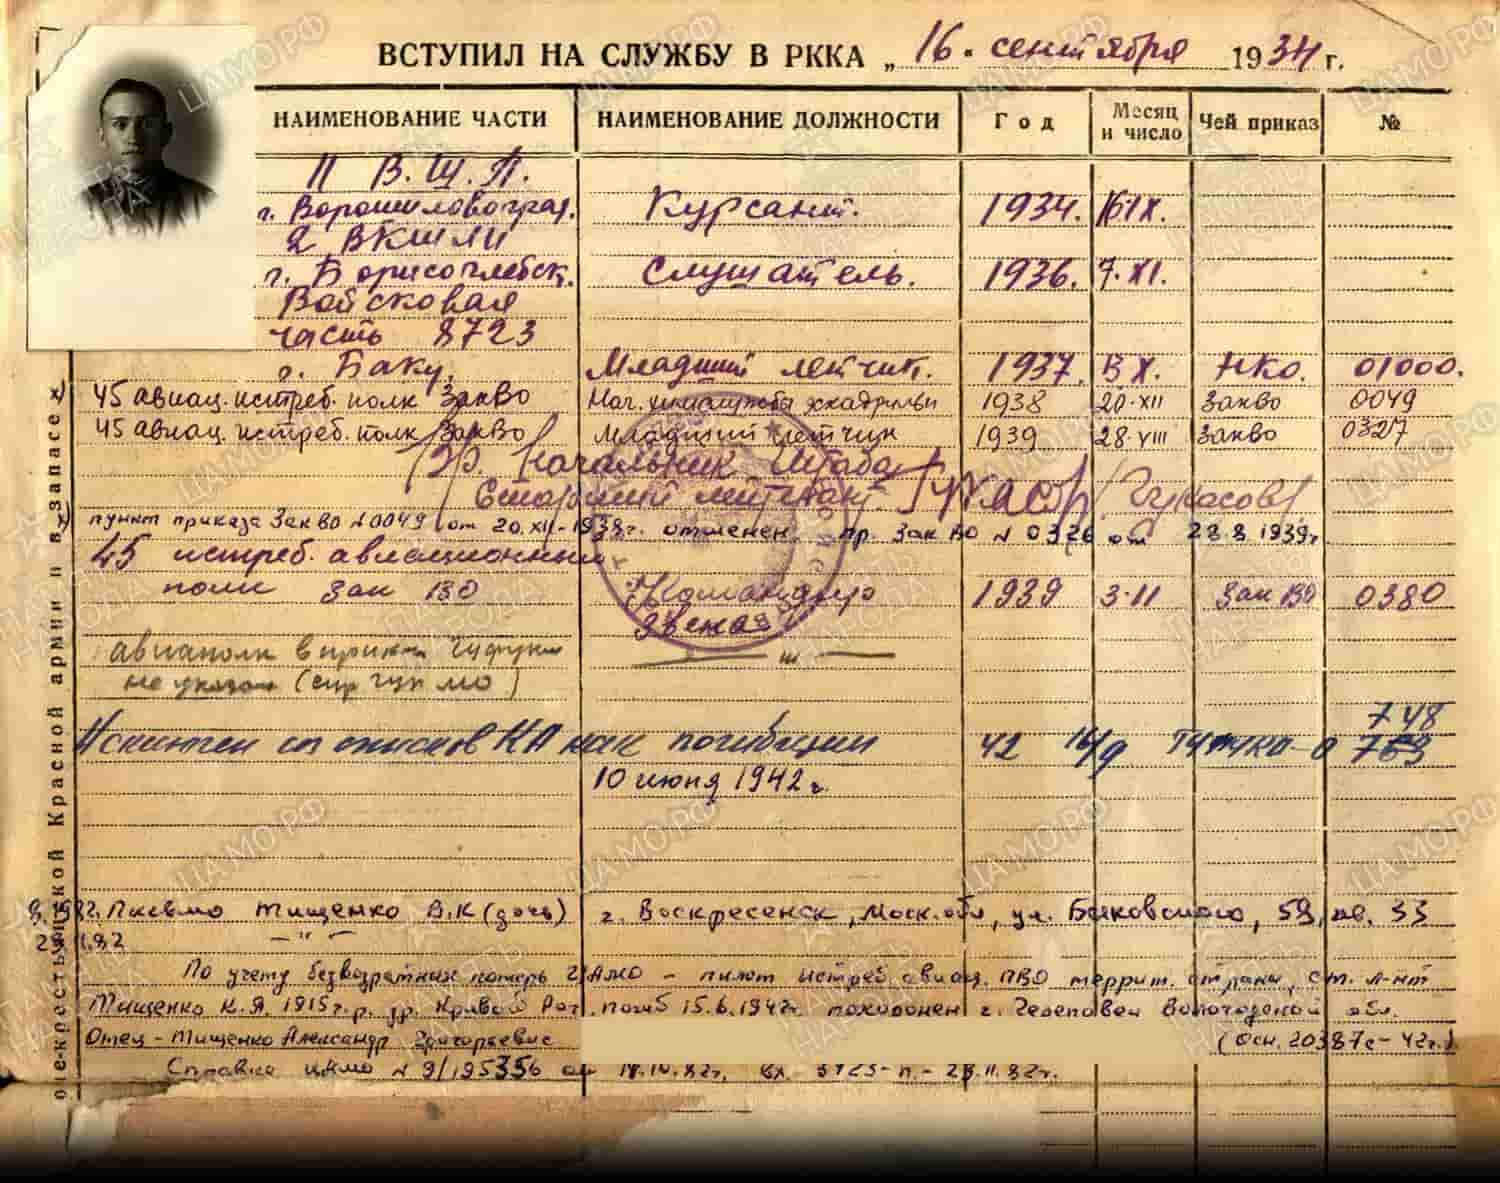 ВСТУПИЛ НА СЛУЖБУ В РККА „16. сентября 1934 г.
НАИМЕНОВАНИЕ ЧАСТИ НАИМЕНОВАНИЕ ДОЛЖНОСТИ Год Месяц и число Чей приказ №
II В.Ш.Л.
г. Ворошиловоград. Курсант. 1934. 16 IX.
2 ВКШЛИ
г. Борисоглебск. Слушатель. 1936. 7. XI.
Войсковая
часть 8723
г. Баку. Младший летчик. 1937. В X. НКО. 01000.
45 авиац. истреб. полк ЗакВО Нач. химслужбы эскадрильи 1938 20.XII ЗакВО 0049
45 авиац. истреб. полк ЗакВО Младший летчик 1939 28.VIII ЗакВО 0327
Начальник Штаба
Старший лейтенант
пункт приказа ЗакВО № 0049 от 20.XII-1938г. отменен. пр. ЗакВО № 0326 от 28.8 1939г
45 истреб. авиационный
полк Зак ВО Командир 1939 3.11 Зак ВО 0380
звена
авиаполк в
не указан
748
Исключен из списков КА как погибший 42 16/9 763
10 июня 1942 г.
Письмо Тищенко В.К (дочь) г. Воскресенск, Моск. обл, ул. 59, кв. 33
—"—
По учету безвозвратных потерь ЦАМО – пилот истреб. авиац. ПВО террит. страны, ст. л-нт
Тищенко К.Я. 1915г.р. ур. Кривой Рог. погиб 15.6.1942г. похоронен г. Череповец Вологодской обл.
Отец – Тищенко Александр Григорьевич (Осн. 20387с – 42г.)
Справка ЦАМО № 9/195356 от
оче-крестьянской Красной армии и в запасе х)
ЦАМО РФ
ПАМЯТЬ НАРОДА